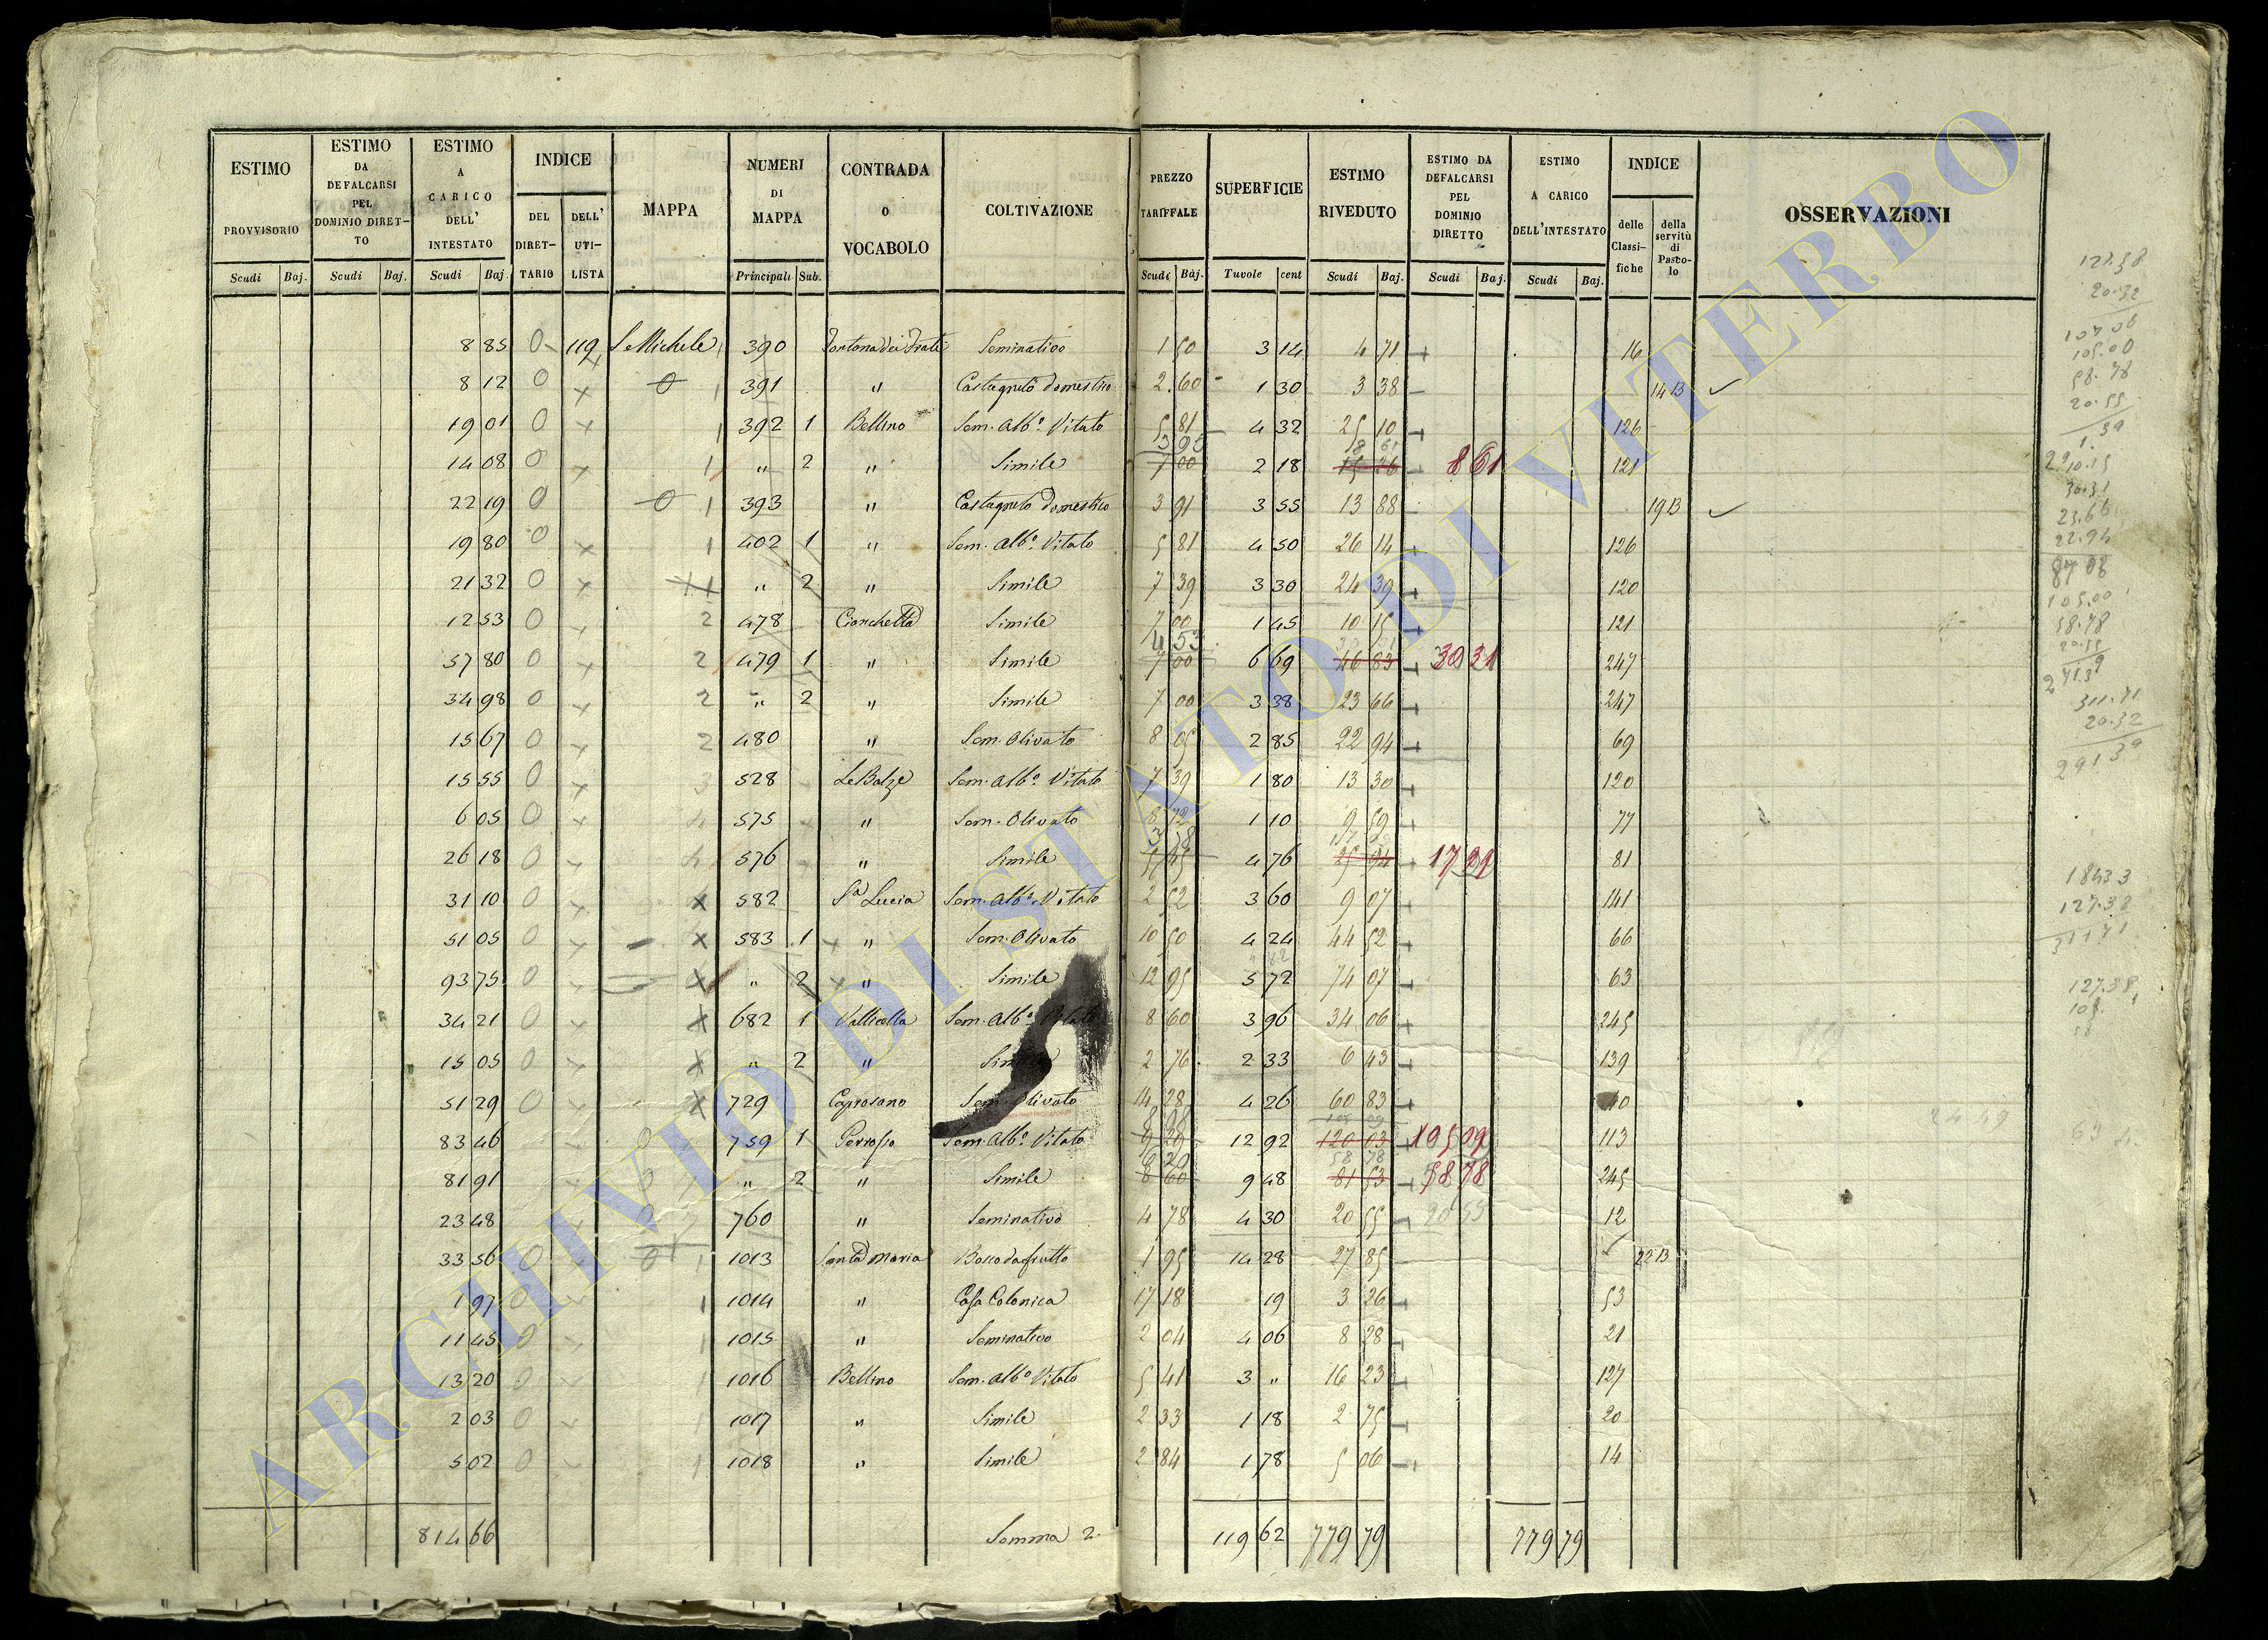 ESTIMO PROVVISORIO Scudi Baj.
ESTIMO DA DEFALCARSI PEL DOMINIO DIRETTO Scudi Baj.
ESTIMO A CARICO DELL' INTESTATO Scudi Baj.
INDICE DEL DIRETTARIO DELL' UTILISTA
MAPPA
NUMERI DI MAPPA Principali Sub.
CONTRADA O VOCABOLO
COLTIVAZIONE
PREZZO TARIFFALE Scudi Baj.
SUPERFICIE Tavole cent
ESTIMO RIVEDUTO Scudi Baj.
ESTIMO DA DEFALCARSI PEL DOMINIO DIRETTO Scudi Baj.
ESTIMO A CARICO DELL'INTESTATO Scudi Baj.
INDICE delle Classifiche della servitù di Pascolo
OSSERVAZIONI
8 85 0 119 S. Michele 390 Seminativo 1 50 3 14 4 71 16
8 12 0 391 " Castagneto domestico 2 60 1 30 3 38 14 B
19 01 0 1 392 1 Bellino Sem. Alb.o Vitato 5 81 4 32 25 10 126
14 08 0 1 " 2 " Simile 3 95 7 00 2 18 8 61 15 26 8 61 121
22 19 0 1 393 " Castagneto domestico 3 91 3 55 13 88 19 B
19 80 0 1 402 1 " Sem. Alb.o Vitato 5 81 4 50 26 14 126
21 32 0 1 " 2 " Simile 7 39 3 30 24 39 120
12 53 0 2 478 Cionchetta Simile 7 00 1 45 10 15 121
57 80 0 2 479 1 " Simile 4 53 7 00 6 69 46 83 30 31 247
34 98 0 2 " 2 " Simile 7 00 3 38 23 66 247
15 67 0 2 480 " Sem. Olivato 8 05 2 85 22 94 69
15 55 0 3 528 Le Balze Sem. Alb.o Vitato 7 39 1 80 13 30 120
6 05 0 575 " Sem. Olivato 8 72 1 10 9 59 77
26 18 0 576 " Simile 5 45 4 76 25 94 17 29 81
31 10 0 582 S.a Lucia Sem. Alb.o Vitato 2 52 3 60 9 07 141
51 05 0 583 1 " Sem. Olivato 10 50 4 24 44 52 66
93 75 0 " 2 " Simile 12 95 5 72 74 07 63
34 21 0 682 1 Vallicella Sem. Alb.o Vitato 8 60 3 96 34 06 245
15 05 0 " 2 " Simile 2 76 2 33 6 43 139
51 29 0 729 Caprosano Sem. Olivato 14 28 4 26 60 83 40
83 46 759 1 Sem. Alb.o Vitato 9 29 12 92 120 03 105 09 113
81 91 " 2 " Simile 6 20 8 60 9 48 58 78 81 53 58 78 245
23 48 760 " Seminativo 4 78 4 30 20 55 20 55 12
33 56 0 1 1013 Santa Maria Bosco da frutto 1 95 14 28 27 85 22 B
1 97 0 1 1014 " Casa Colonica 17 18 19 3 26 53
11 45 0 1 1015 " Seminativo 2 04 4 06 8 28 21
13 20 0 1 1016 Bellino Sem. Alb.o Vitato 5 41 3 " 16 23 127
2 03 0 1 1017 " Simile 2 33 1 18 2 75 20
5 02 0 1 1018 " Simile 2 84 1 78 5 06 14
814 66 Somma 2. 119 62 779 79 779 79
127.38
20.32
107 06
105.00
58.78
20.55
30.31
23.66
22.94
87 08
105.00
58.78
20.55
311.71
20.32
291 39
184 33
127.38
311 71
127.38
ARCHIVIO DI STATO DI VITERBO